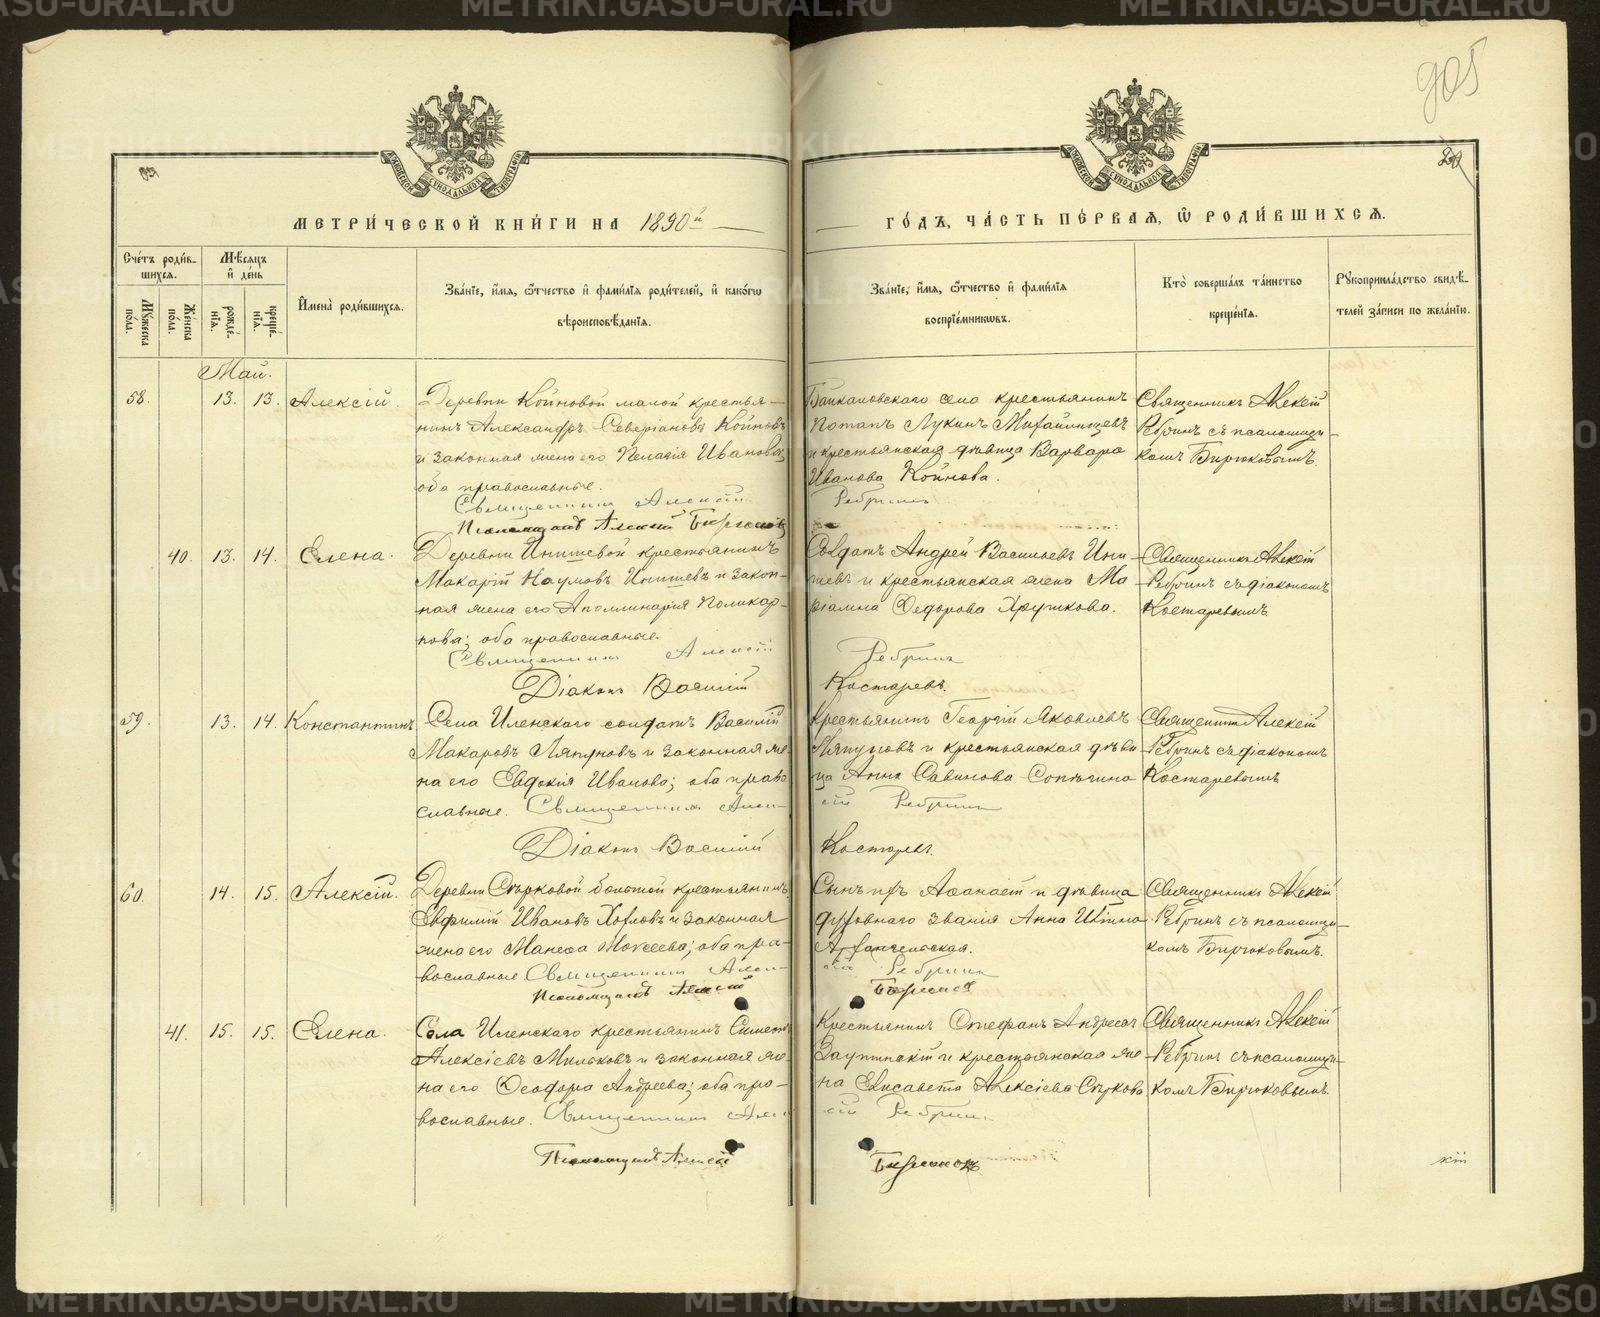 METRIKI.GASO-URAL.RU
905
МОСКОВСКОЙ СѴНОДАЛЬНОЙ ТИПОГРАФІИ
МОСКОВСКОЙ СѴНОДАЛЬНОЙ ТИПОГРАФІИ
МЕТРИ́ЧЕСКОЙ КНИ́ГИ НА 1890й
ГО́ДЪ, ЧА́СТЬ ПЕ́РВАЯ, Ѡ РОДИ́ВШИХСЯ.
Сче́тъ роди́в-
шихся.
Му́жеска по́ла.
Же́нска по́ла.
Мѣ́сяцъ
и҆ де́нь
рожде́-
нїя.
креще́-
нїя.
И҆мена̀ роди́вшихся.
Зва́нїе, и҆́мя, ѻ҆́тчество и҆ фами́лїя роди́телей, и҆ како́гѡ
вѣроисповѣ́данїя.
Зва́нїе, и҆́мя, ѻ҆́тчество и҆ фами́лїя
воспрїе́мникѡвъ.
Кто̀ соверша́лъ та́инство
креще́нїя.
Рꙋкоприкла́дство свидѣ́-
телей за́писи по жела́нїю.
Май.
58. 13. 13. Алексій.
Деревни Койновой малой крестья-
нинъ Александръ Северіановъ Койновъ
и законная жена его Пелагія Иванова;
оба православные.
Священникъ Алексій
Псаломщикъ Алексій Бирюковъ
Байкаловскаго села крестьянинъ
Потапъ Лукинъ Михайлищевъ
и крестьянская дѣвица Варвара
Иванова Койнова.
Ребринъ
Священникъ Алексій
Ребринъ съ псаломщи-
комъ Бирюковымъ.
40. 13. 14. Елена.
Деревни Инишевой крестьянинъ
Макарій Наумовъ Инишевъ и закон-
ная жена его Аполлинарія Поликар-
пова; оба православные.
Священникъ Алексій
Діаконъ Василій
Солдатъ Андрей Васильевъ Ини-
шевъ и крестьянская жена Ма-
ріамна Ѳедорова Хрушкова.
Ребринъ
Костаревъ.
Священникъ Алексій
Ребринъ съ діакономъ
Костаревымъ
59. 13. 14. Константинъ
Села Иленскаго солдатъ Василій
Макаровъ Ляпуновъ и законная же-
на его Евдокія Иванова; оба право
славные. Священникъ Алек-
Діаконъ Василій
Крестьянинъ Георгій Яковлевъ
Ляпуновъ и крестьянская дѣви
ца Анна Савинова Сопыгина
сій Ребринъ
Костаревъ.
Священникъ Алексій
Ребринъ съ діакономъ
Костаревымъ
60. 14. 15. Алексій.
Деревни Сѣрковой большой крестьянинъ
Евфимій Ивановъ Хохловъ и законная
жена его Манефа Моисеева; оба пра-
вославные Священникъ Алек-
Псаломщикъ Алексій
дѣвица
духовнаго званія Анна
Архангельская.
сій Ребринъ
Бирюковъ
Священникъ Алексій
Ребринъ съ псаломщи-
комъ Бирюковымъ.
41. 15. 15. Елена.
Села Иленскаго крестьянинъ Симеонъ
Алексіевъ Мильковъ и законная же-
на его Ѳеодора Андреева; оба пра-
вославные. Священникъ Алек
Псаломщикъ Алексій
Крестьянинъ Стефанъ Андреевъ
и крестьянская же-
на Елисавета Алексіева Сѣркова
сій Ребринъ
Бирюковъ
Священникъ Алексій
Ребринъ съ псаломщи-
комъ Бирюковымъ.